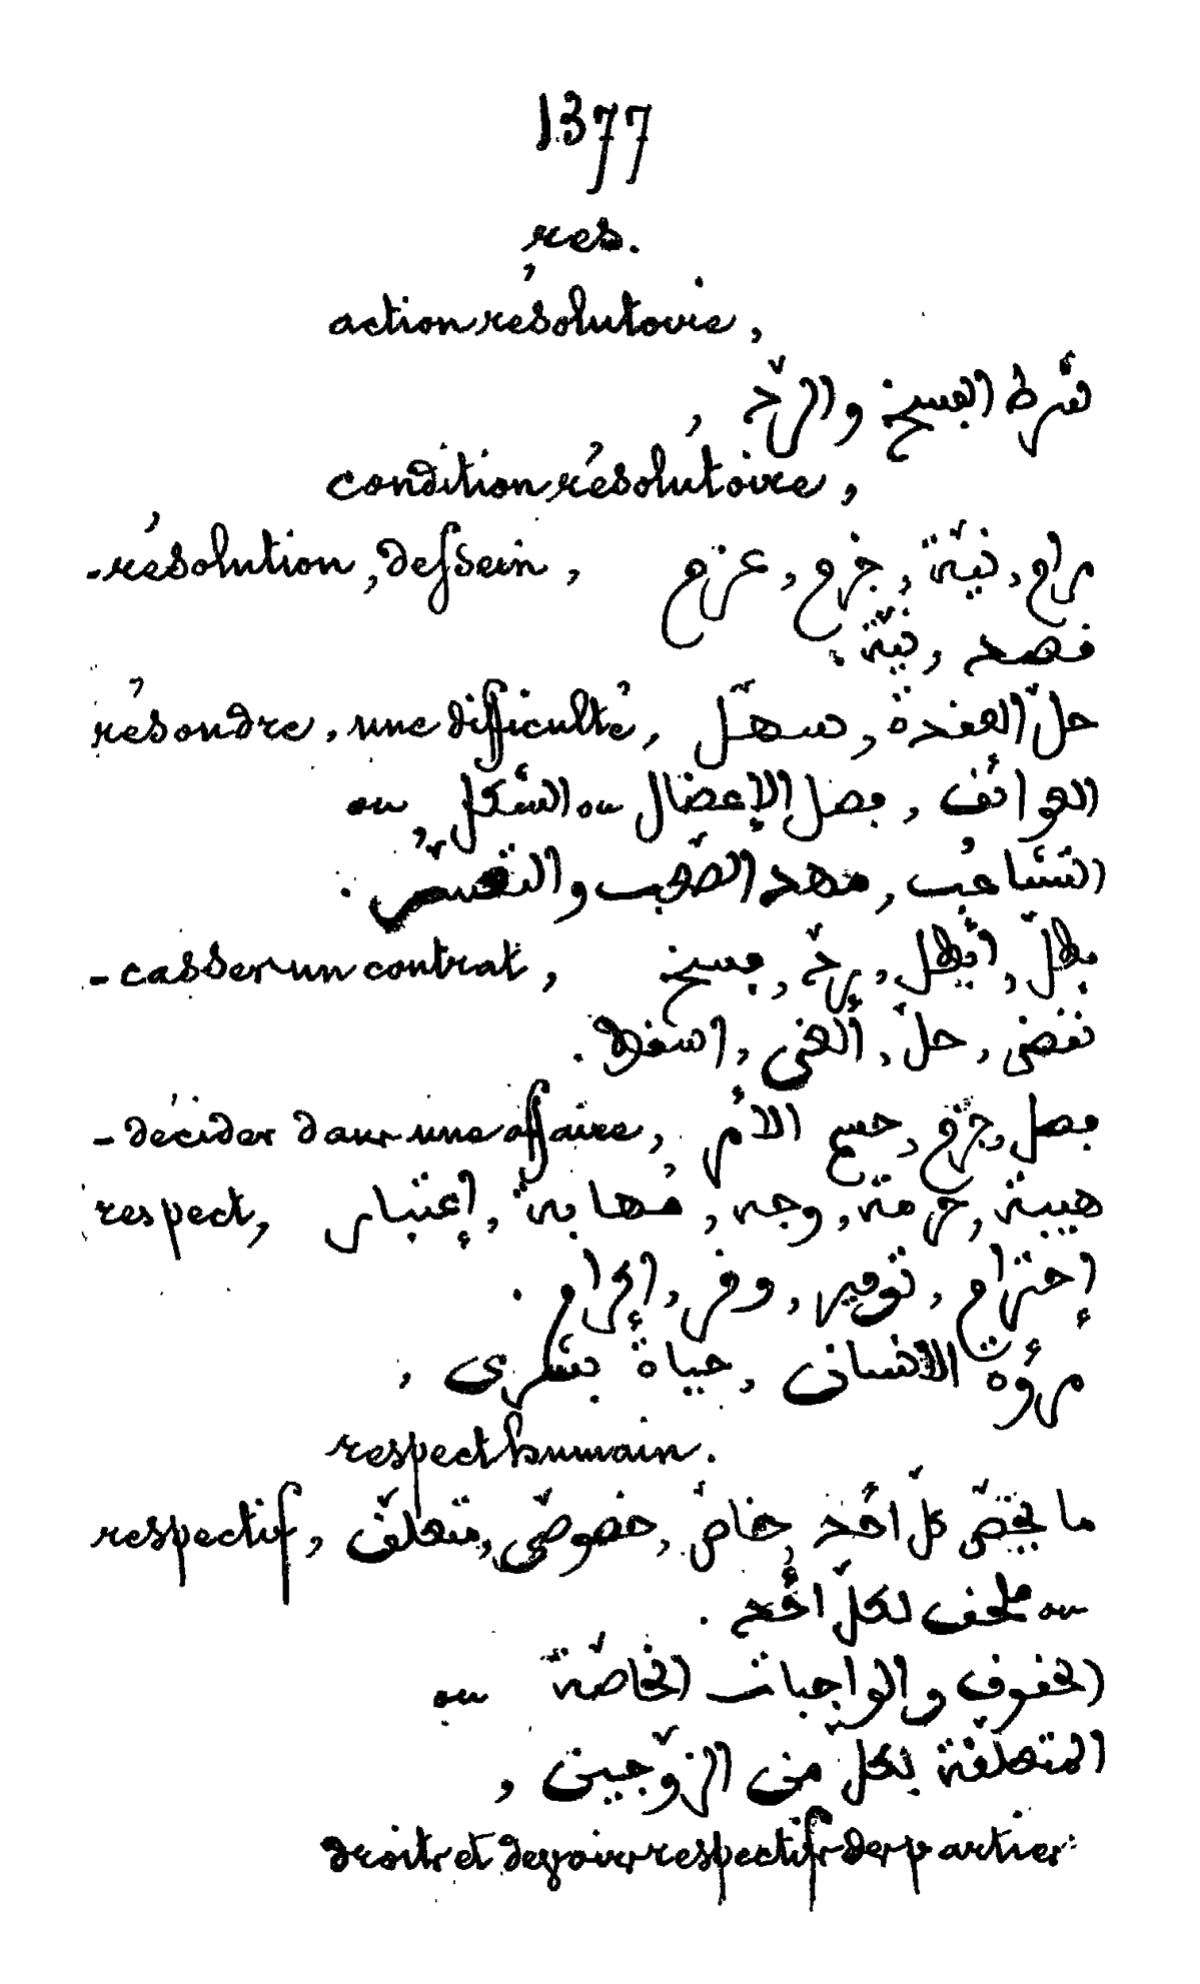 1377
res.
action résolutoire,
شرط الفسخ والردّ,
condition résolutoire,
-résolution, dessein, مرام, نيّة, جزم, عزم
قصد, نيّة.
résoudre, une difficulté, حلّ العقدة, سهّل
العوائق, فصل الإعضال ou الشكل ou
التشاغب, مهد الصّعب والتعسّر.
-casser un contrat, بطّل, أبطل, ردّ, فسخ
نقض, حلّ, ألغى, اسقط.
-décider dans une affaire, فصل, جزم, حسم الأمر
respect, هيبة, حرمة, وجه, مهابة, إعتبار
إحترام, توقير, وقر, إكرام.
مرؤة الانسان, حياة بشرى,
respect humain.
respectif, ما يخصّ كلّ أحد, خاصّ, خصوصّى, متعلّق
ou ملحق لكلّ أحد.
الحقوق والواجبات الخاصّة ou
المتعلّقة بكلّ من الزّوجين,
droits et devoirs respectifs des parties.